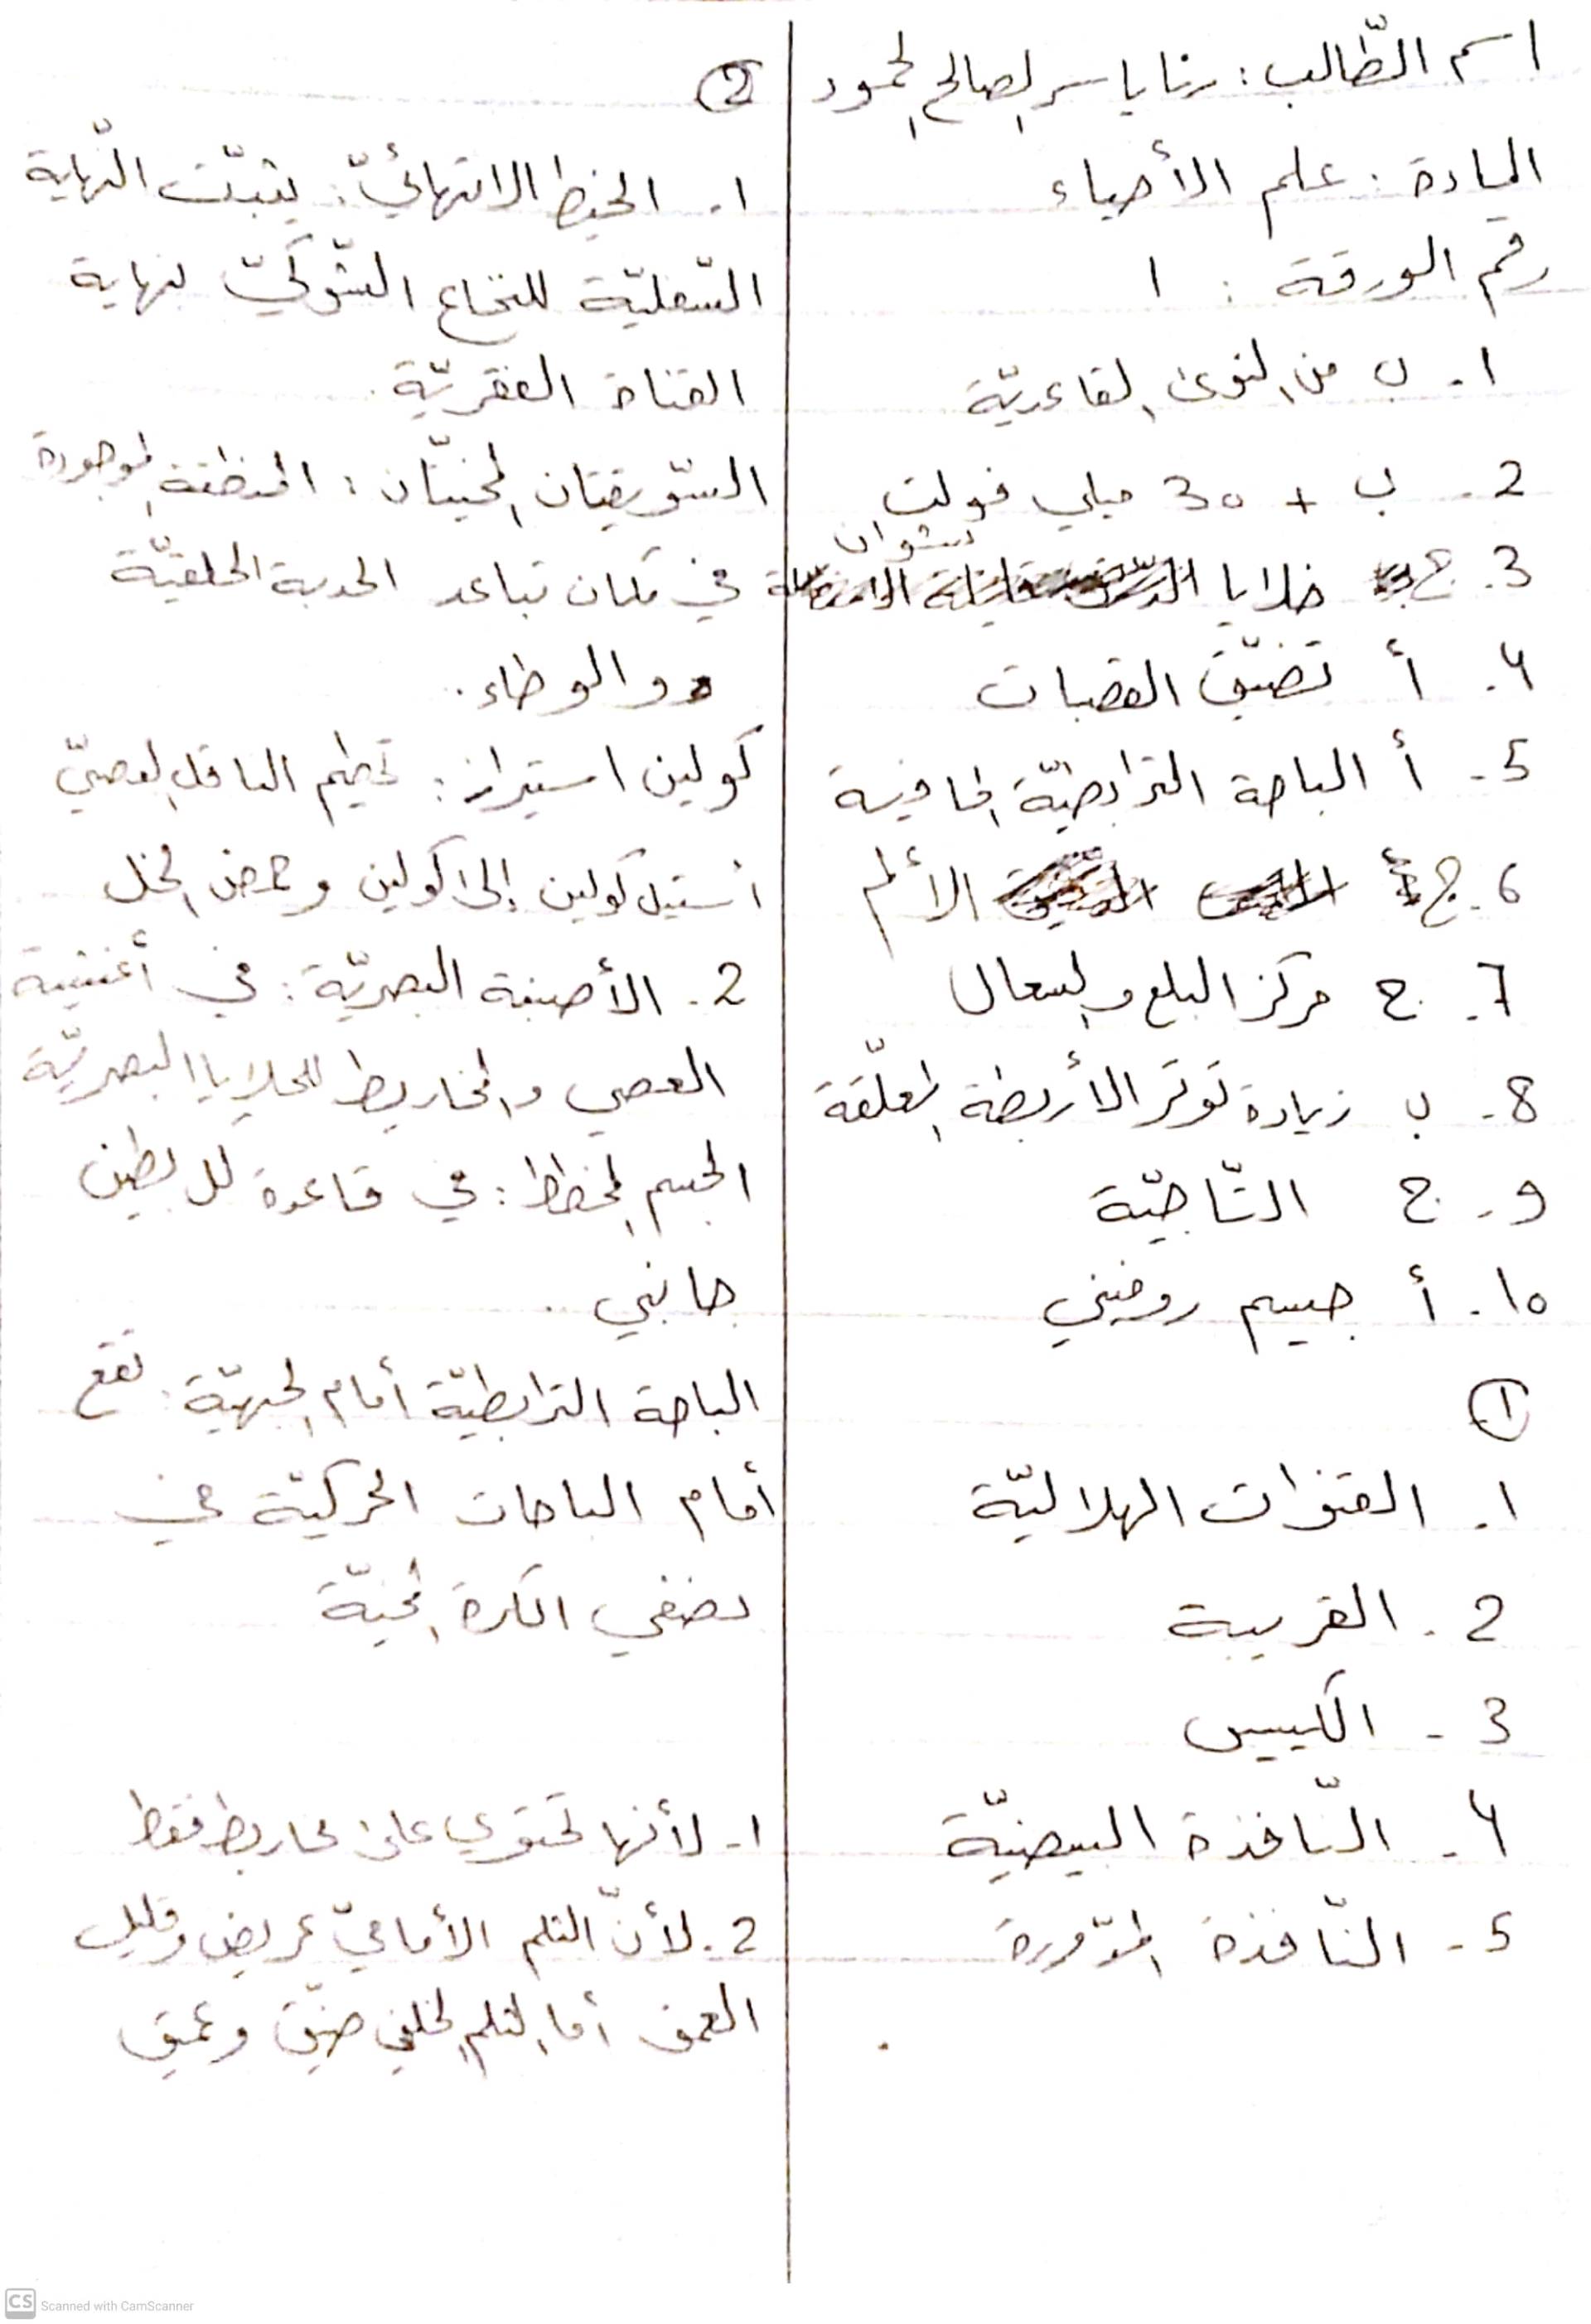 اسم الطّالب: رنا ياسر الصالح الحمود
المادة: علم الأحياء
رقم الورقة: ١
١- ب من النوى القاعديّة
2- ب + 30 ميلي فولت
3- ج خلايا شوان
٤- أ تضيّق القصبات
5- أ الباحة الترابطيّة الحافية
6- ج الألم
7- ج مركز البلع والسعال
8- ب زيادة توتر الأربطة المعلّقة
9- ج التّاجيّة
10- أ جسيم روفيني
①
١- القنوات الهلاليّة
2- القريبة
3- الكييس
٤- النّافذة البيضيّة
5- النّافذة المدّورة
②
١- الخيط الانتهائيّ: يثبّت النّهاية
السّفليّة للنخاع الشّوكيّ بنهاية
القناة الفقريّة.
السّويقتان المخيّتان: المنطقة الموجودة
في مكان تباعد الحدبة الحلقيّة
والوطاء.
كولين استيراز: تحطيم الناقل العصبيّ
أستيل كولين إلى كولين وحمض الخل
2- الأصبغة البصريّة: في أغشية
العصي والمخاريط للخلايا البصريّة
الجسم المخطط: في قاعدة كل بطين
جانبي.
الباحة الترابطيّة أمام الجبهيّة: تقع
أمام الباحات الحركيّة في
نصفي الكرة المخيّة
١- لأنها تحتوي على مخاريط فقط
2- لأنّ الثلم الأماميّ عريض وقليل
العمق أما الثلم الخلفي ضيّق وعميق
CS Scanned with CamScanner